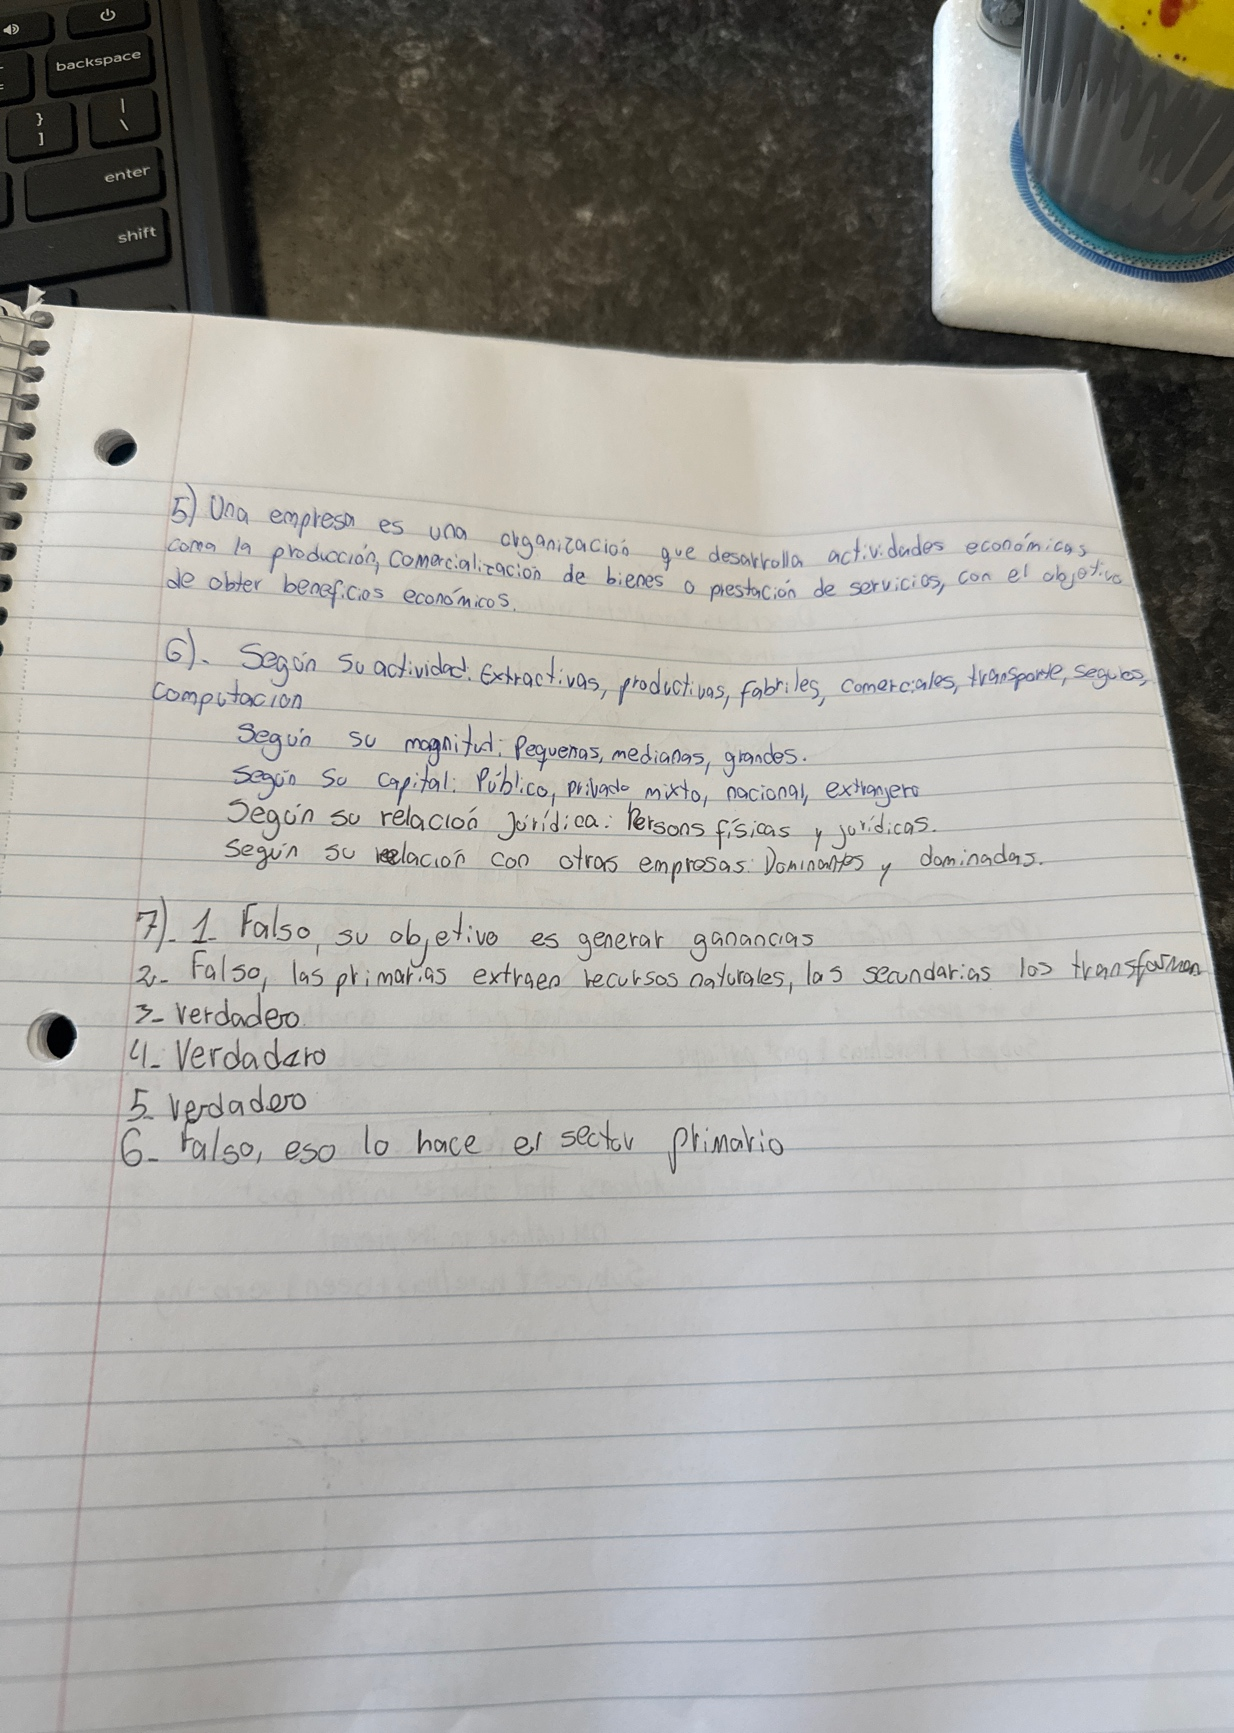 backspace
}
]
|
\
enter
shift
5) Una empresa es una organización que desarrolla actividades económicas
como la producción, comercialización de bienes o prestación de servicios, con el objetivo
de obter beneficios económicos.
6). Según su actividad: Extractivas, productivas, fabriles, comerciales, transporte, seguros,
computacion
Según su magnitud: Pequenas, medianas, grandes.
Según su capital: Público, privado mixto, nacional, extranjero
Según su relación jurídica: Persons físicas y jurídicas.
Según su relación con otras empresas: Dominantes y dominadas.
7). 1- Falso, su objetivo es generar ganancias
2- Falso, las primarias extraen recursos naturales, las secundarias los transforman
3- verdadero.
4- Verdadero
5- verdadero
6- Falso, eso lo hace el sector primario